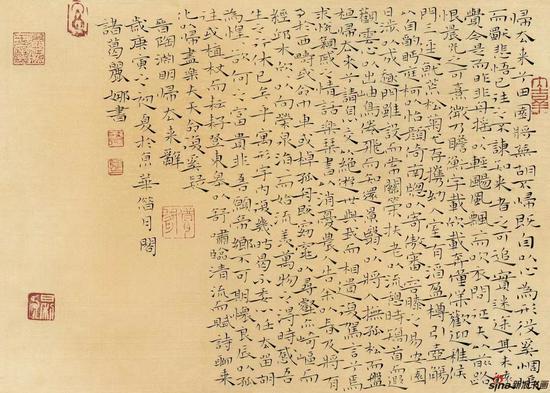 歸去來兮田園將蕪胡不歸既自以心為形役奚惆悵
而獨悲悟已往之不諫知來者之可追實迷途其未遠
覺今是而昨非舟搖搖以輕颺風飄飄而吹衣問征夫以前路
恨晨光之熹微乃瞻衡宇載欣載奔僮僕歡迎稚子候
門三逕就荒松菊猶存攜幼入室有酒盈樽引壺觴
以自酌眄庭柯以怡顏倚南窗以寄傲審容膝之易安園
日涉以成趣門雖設而常關策扶老以流憩時矯首而遐
觀雲無心以出岫鳥倦飛而知還景翳翳以將入撫孤松而盤
桓歸去來兮請息交以絕遊世與我而相遺復駕言兮焉
求悅親戚之情話樂琴書以消憂農人告余以春及將有
事於西疇或命巾車或棹孤舟既窈窕以尋壑亦崎嶇而
經丘木欣欣以向榮泉涓涓而始流羨萬物之得時感吾
生之行休已矣乎寓形宇內復幾時曷不委心任去留胡
為遑遑欲何之富貴非吾願帝鄉不可期懷良辰以孤
往或植杖而耘耔登東皋以舒嘯臨清流而賦詩聊乘
化以歸盡樂夫天命復奚疑
晉陶淵明歸去來辭
歲庚寅之初夏於京華借月閣
諸葛麗娜書
sina新浪书画